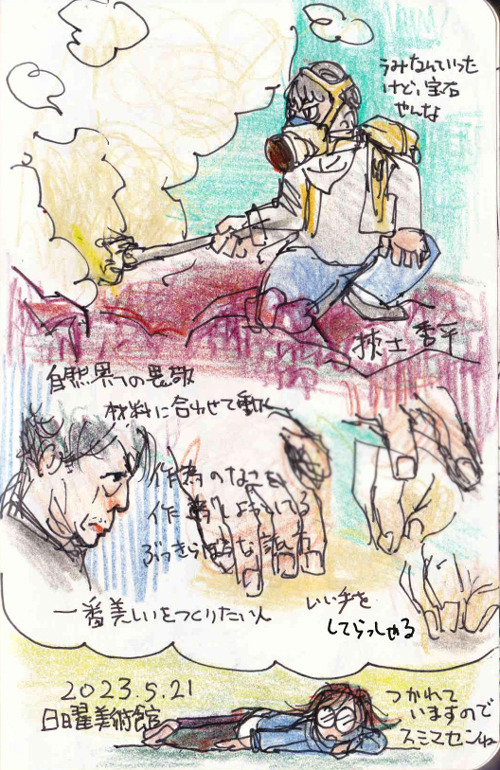 うみなんていった
けど、宝石
やんな
自然界への畏敬
材料に合わせて動く
作為のなさを
作為しようとしてる
ぶっきらぼうな
一番美しいをつくりたいん
いい手を
してらっしゃる
2023.5.21
日曜美術館
つかれて
いますので
スミマセンね